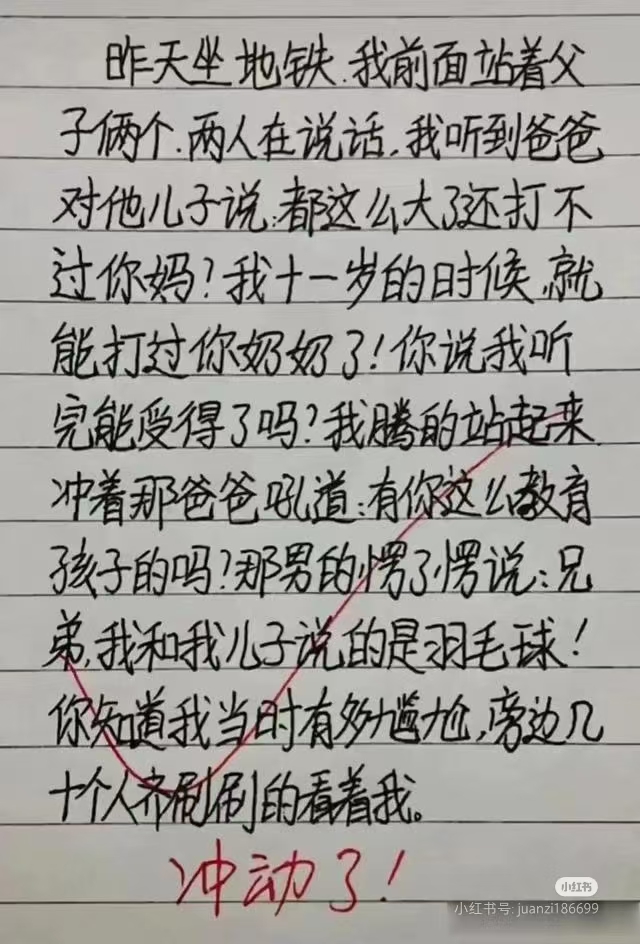 昨天坐地铁.我前面站着父
子俩个.两人在说话,我听到爸爸
对他儿子说:都这么大了还打不
过你妈?我十一岁的时候,就
能打过你奶奶了!你说我听
完能受得了吗?我腾的站起来
冲着那爸爸吼道:有你这么教育
孩子的吗?那男的愣了愣说:兄
弟,我和我儿子说的是羽毛球!
你知道我当时有多尴尬,旁边几
十个人齐刷刷的看着我。
冲动了!
小红书
小红书号: juanzi186699